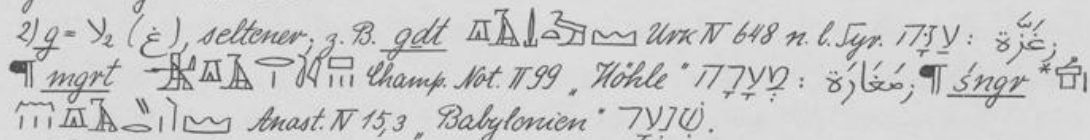 2) g = ע₂ (غ), seltener; z. B. gdt Urk IV 648 n. l. Syr. עַזָּה : غَزَّة;
¶ mgrt Champ. Not. II 99 „Höhle“ מְעָרָה : مَغَارَة; ¶ śngr*
Anast. IV 15,3 „Babylonien“ שִׁנְעָר.